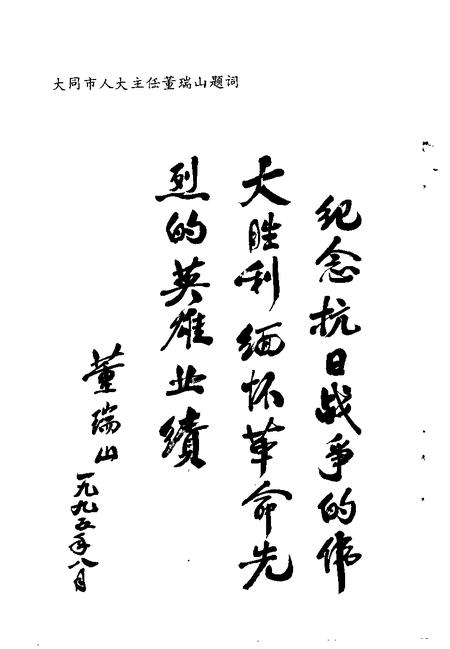 大同市人大主任董瑞山题词
纪念抗日战争的伟
大胜利缅怀革命先
烈的英雄业绩
董瑞山
一九九五年八月